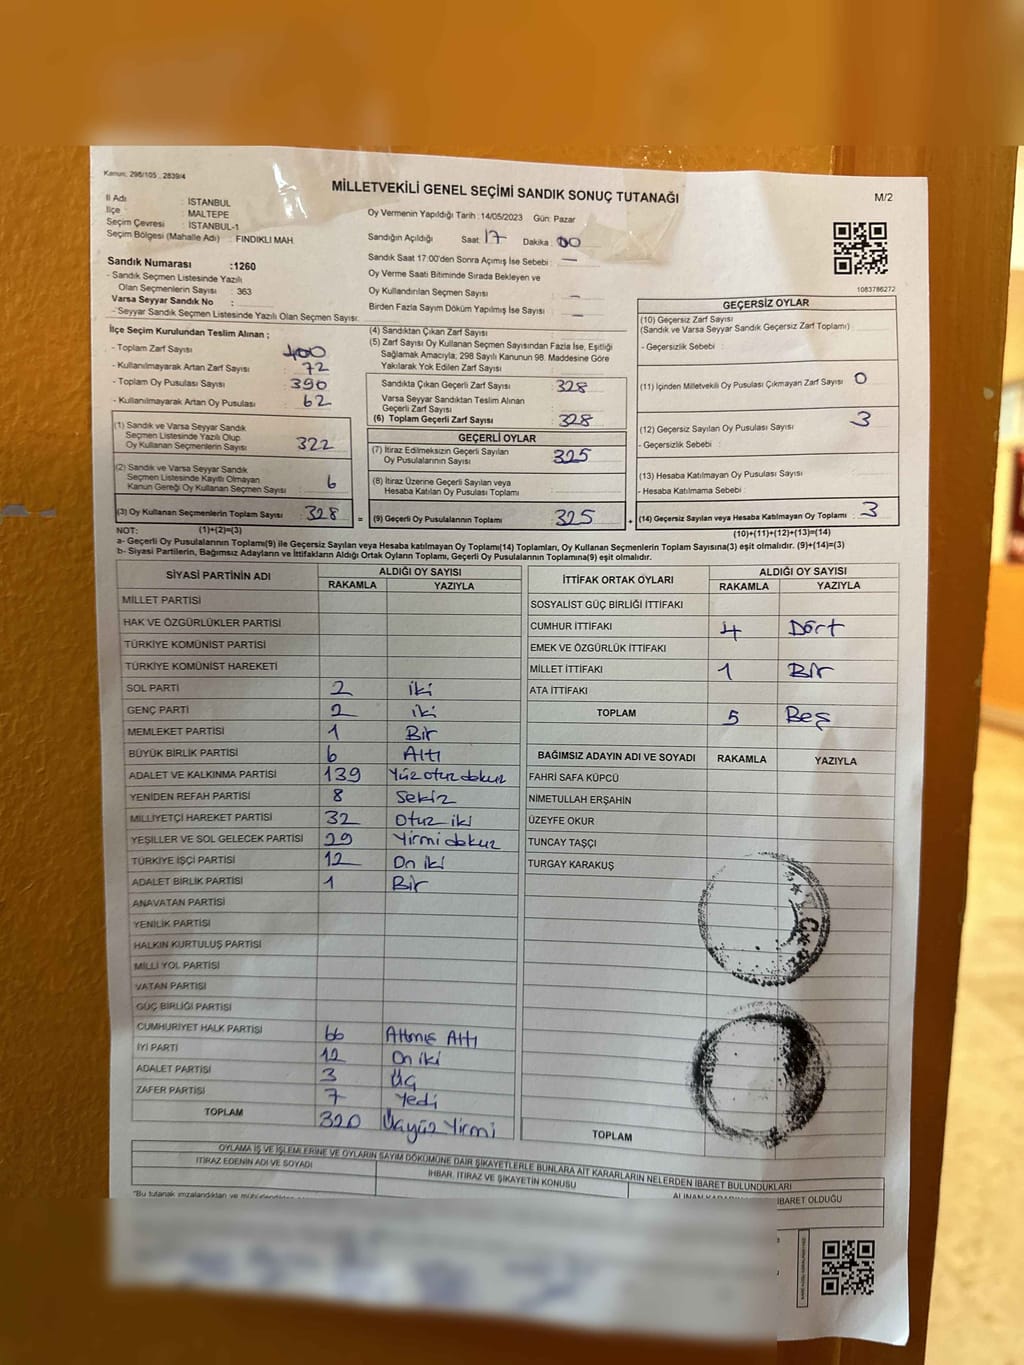 Kanun: 298/105 , 2839/4
MİLLETVEKİLİ GENEL SEÇİMİ SANDIK SONUÇ TUTANAĞI
M/2
İl Adı : İSTANBUL
İlçe : MALTEPE
Seçim Çevresi : İSTANBUL-1
Seçim Bölgesi (Mahalle Adı) : FINDIKLI MAH
Oy Vermenin Yapıldığı Tarih : 14/05/2023 Gün: Pazar
Sandığın Açıldığı Saat : 17 Dakika : 00
Sandık Saat 17:00'den Sonra Açımış İse Sebebi : —
Oy Verme Saati Bitiminde Sırada Bekleyen ve
Oy Kullandırılan Seçmen Sayısı : —
Birden Fazla Sayım Döküm Yapılmış İse Sayısı : —
1083786272
Sandık Numarası :1260
- Sandık Seçmen Listesinde Yazılı
Olan Seçmenlerin Sayısı : 363
Varsa Seyyar Sandık No :
- Seyyar Sandık Seçmen Listesinde Yazılı Olan Seçmen Sayısı:
İlçe Seçim Kurulundan Teslim Alınan ;
- Toplam Zarf Sayısı : 400
- Kullanılmayarak Artan Zarf Sayısı : 72
- Toplam Oy Pusulası Sayısı : 390
- Kullanılmayarak Artan Oy Pusulası : 62
(1) Sandık ve Varsa Seyyar Sandık
Seçmen Listesinde Yazılı Olup
Oy Kullanan Seçmenlerin Sayısı : 322
(2) Sandık ve Varsa Seyyar Sandık
Seçmen Listesinde Kayıtlı Olmayan
Kanun Gereği Oy Kullanan Seçmen Sayısı : 6
(3) Oy Kullanan Seçmenlerin Toplam Sayısı : 328
(4) Sandıktan Çıkan Zarf Sayısı :
(5) Zarf Sayısı Oy Kullanan Seçmen Sayısından Fazla İse, Eşitliği
Sağlamak Amacıyla, 298 Sayılı Kanunun 98. Maddesine Göre
Yakılarak Yok Edilen Zarf Sayısı :
Sandıkta Çıkan Geçerli Zarf Sayısı : 328
Varsa Seyyar Sandıktan Teslim Alınan
Geçerli Zarf Sayısı :
(6) Toplam Geçerli Zarf Sayısı : 328
GEÇERLİ OYLAR
(7) İtiraz Edilmeksizin Geçerli Sayılan
Oy Pusulalarının Sayısı : 325
(8) İtiraz Üzerine Geçerli Sayılan veya
Hesaba Katılan Oy Pusulası Toplamı :
= (9) Geçerli Oy Pusulalarının Toplamı : 325
GEÇERSİZ OYLAR
(10) Geçersiz Zarf Sayısı
(Sandık ve Varsa Seyyar Sandık Geçersiz Zarf Toplamı)
- Geçersizlik Sebebi :
(11) İçinden Milletvekili Oy Pusulası Çıkmayan Zarf Sayısı : 0
(12) Geçersiz Sayılan Oy Pusulası Sayısı : 3
- Geçersizlik Sebebi :
(13) Hesaba Katılmayan Oy Pusulası Sayısı :
- Hesaba Katılmama Sebebi :
+ (14) Geçersiz Sayılan veya Hesaba Katılmayan Oy Toplamı : 3
NOT: (1)+(2)=(3) (10)+(11)+(12)+(13)=(14)
a- Geçerli Oy Pusulalarının Toplamı(9) ile Geçersiz Sayılan veya Hesaba katılmayan Oy Toplamı(14) Toplamları, Oy Kullanan Seçmenlerin Toplam Sayısına(3) eşit olmalıdır. (9)+(14)=(3)
b- Siyasi Partilerin, Bağımsız Adayların ve İttifakların Aldığı Ortak Oyların Toplamı, Geçerli Oy Pusulalarının Toplamına(9) eşit olmalıdır.
SİYASİ PARTİNİN ADI ALDIĞI OY SAYISI
RAKAMLA YAZIYLA
MİLLET PARTİSİ
HAK VE ÖZGÜRLÜKLER PARTİSİ
TÜRKİYE KOMÜNİST PARTİSİ
TÜRKİYE KOMÜNİST HAREKETİ
SOL PARTİ 2 iki
GENÇ PARTİ 2 iki
MEMLEKET PARTİSİ 1 Bir
BÜYÜK BİRLİK PARTİSİ 6 Altı
ADALET VE KALKINMA PARTİSİ 139 Yüz otuz dokuz
YENİDEN REFAH PARTİSİ 8 Sekiz
MİLLİYETÇİ HAREKET PARTİSİ 32 Otuz iki
YEŞİLLER VE SOL GELECEK PARTİSİ 29 Yirmi dokuz
TÜRKİYE İŞÇİ PARTİSİ 12 On iki
ADALET BİRLİK PARTİSİ 1 Bir
ANAVATAN PARTİSİ
YENİLİK PARTİSİ
HALKIN KURTULUŞ PARTİSİ
MİLLİ YOL PARTİSİ
VATAN PARTİSİ
GÜÇ BİRLİĞİ PARTİSİ
CUMHURİYET HALK PARTİSİ 66 Altmış Altı
İYİ PARTİ 12 On iki
ADALET PARTİSİ 3 Üç
ZAFER PARTİSİ 7 Yedi
TOPLAM 320 Üçyüz Yirmi
İTTİFAK ORTAK OYLARI ALDIĞI OY SAYISI
RAKAMLA YAZIYLA
SOSYALİST GÜÇ BİRLİĞİ İTTİFAKI
CUMHUR İTTİFAKI 4 Dört
EMEK VE ÖZGÜRLÜK İTTİFAKI
MİLLET İTTİFAKI 1 Bir
ATA İTTİFAKI
TOPLAM 5 Beş
BAĞIMSIZ ADAYIN ADI VE SOYADI RAKAMLA YAZIYLA
FAHRİ SAFA KÜPCÜ
NİMETULLAH ERŞAHİN
ÜZEYFE OKUR
TUNCAY TAŞÇI
TURGAY KARAKUŞ
TOPLAM
OYLAMA İŞ VE İŞLEMLERİNE VE OYLARIN SAYIM DÖKÜMÜNE DAİR ŞİKAYETLERLE BUNLARA AİT KARARLARIN NELERDEN İBARET BULUNDUKLARI
İTİRAZ EDENİN ADI VE SOYADI
İHBAR, İTİRAZ VE ŞİKAYETİN KONUSU
İBARET OLDUĞU
"Bu tutanak imzalandıktan ve